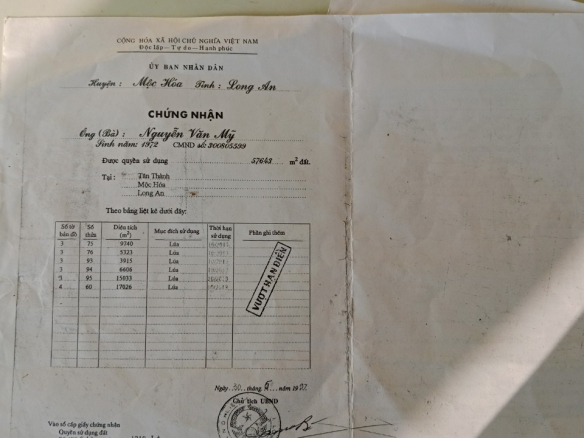 CỘNG HÒA XÃ HỘI CHỦ NGHĨA VIỆT NAM
Độc lập — Tự do — Hạnh phúc
ỦY BAN NHÂN DÂN
Huyện : Mộc Hóa Tỉnh : Long An
CHỨNG NHẬN
Ông (Bà) : Nguyễn Văn Mỹ
Sinh năm: 1972 CMND số: 300805599
Được quyền sử dụng 57643 m² đất.
Tại : Tân Thành
Mộc Hóa
Long An
Theo bảng liệt kê dưới đây:
Số tờ bản đồ Số thửa Diện tích (m²) Mục đích sử dụng Thời hạn sử dụng Phần ghi thêm
3 75 9740 Lúa
3 76 5323 Lúa
3 93 3915 Lúa
3 94 6606 Lúa
3 95 15033 Lúa
4 60 17026 Lúa
VƯỢT HẠN ĐIỀN
Ngày tháng năm
Chủ tịch UBND
Vào sổ cấp giấy chứng nhận
Quyền sử dụng đất